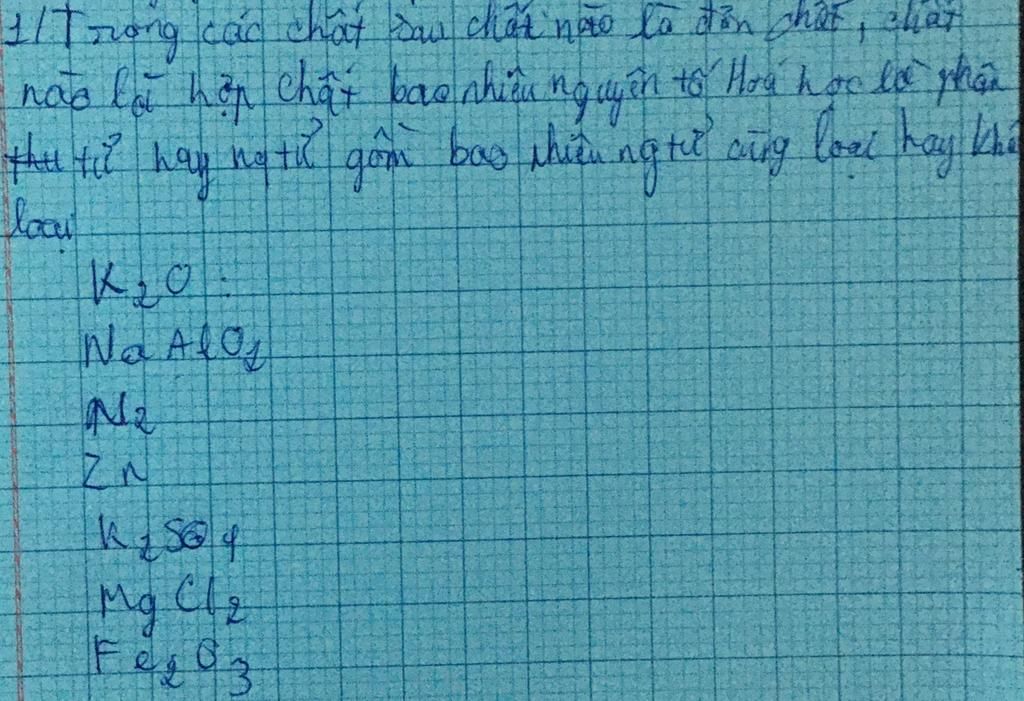 1/ Trong các chất sau chất nào là đơn chất, chất
nào là hợp chất bao nhiêu nguyên tố Hoá học là phân
tử hay ngtử gồm bao nhiêu ngtử cùng loại hay khá
loại
K2O :
NaAlO2
N2
Zn
K2SO4
MgCl2
Fe2O3